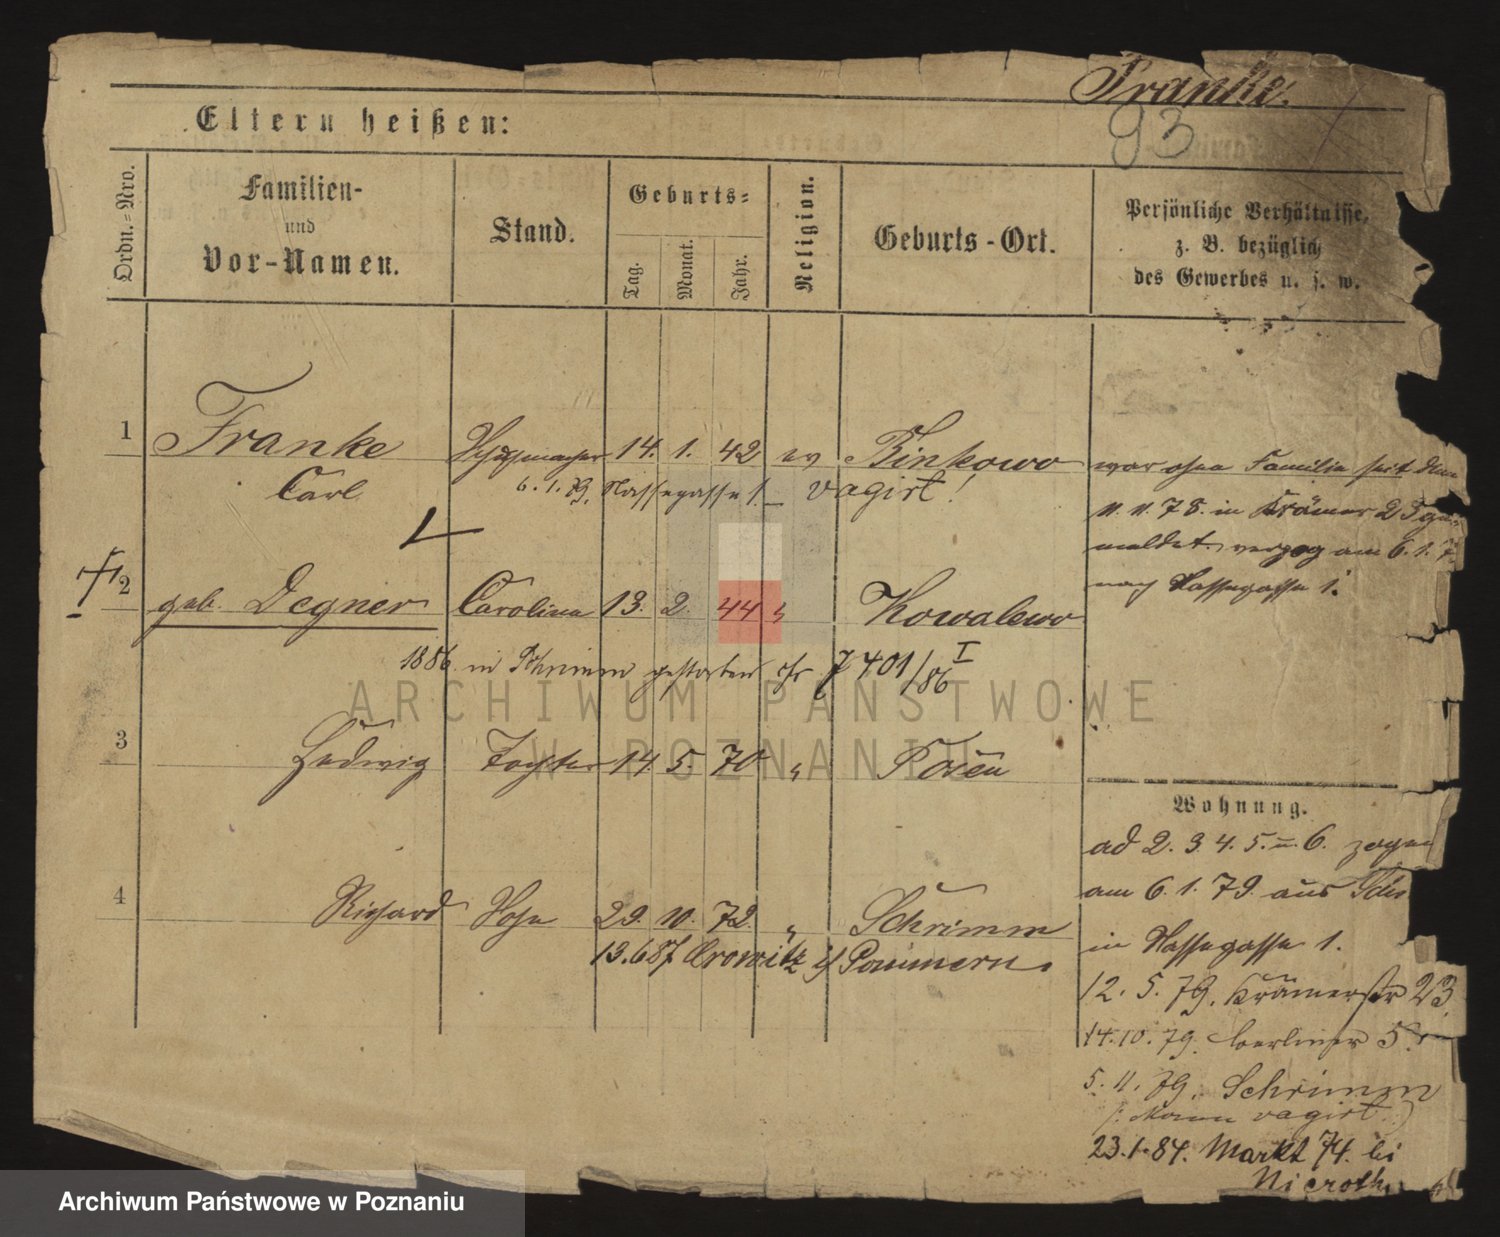 Franke.
93
Eltern heißen:
Ordn.=Nro.
Familien-
und
Vor-Namen.
Stand.
Geburts=
Tag.
Monat.
Jahr.
Religion.
Geburts-Ort.
Persönliche Verhältnisse,
z. B. bezüglich
des Gewerbes u. s. w.
1 Franke 14. 1. 42 ev Binkowo
Carl 6. 1. 79. Nassegasse 1. vagirt!
war ohne Familie seit dem
11. 11. 78. in Krämer 23 ge-
meldet. verzog am 6. 1. 7
nach Nassegasse 1.
2 geb. Degner Caroline 13. 2. 44 " Kowalewo
1886 in Schrimm gestorben 7401/86 I
ARCHIWUM PAŃSTWOWE
W POZNANIU
3 Hedwig Tochter 14 5. 70 " Posen
4 Richard Sohn 29. 10. 72. " Schrimm
13.6 87 Pommern.
Wohnung.
ad 2. 3. 4. 5. u. 6. zogen
am 6. 1. 79. aus
in Nassegasse 1.
12. 5. 79. Krämerstr 23.
14. 10. 79. Berliner 5
5. 11. 79. Schrimm
(: Mann vagirt :)
23.1.84. Markt 74. bei
Nieroth
Archiwum Państwowe w Poznaniu